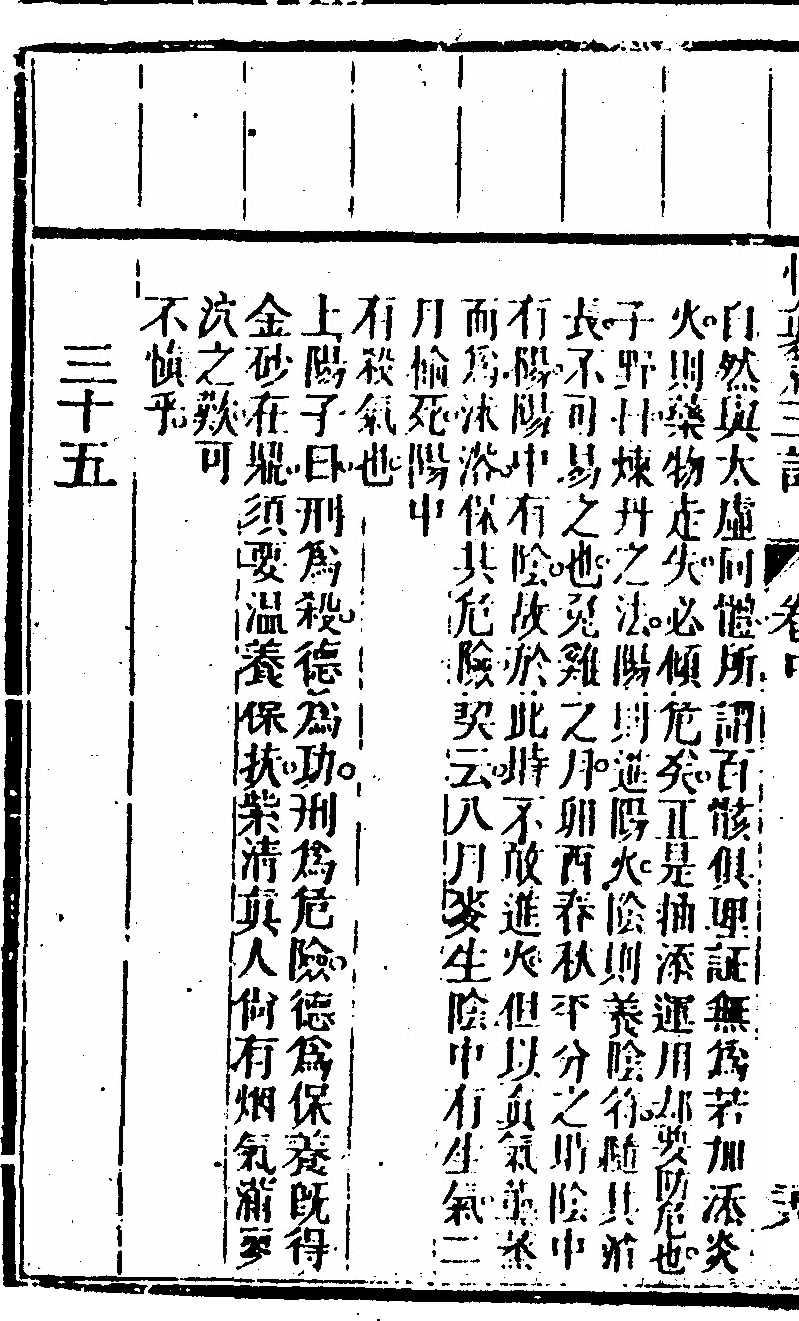 三註 卷中
自然與太虛同體所謂百骸俱理証無為若加添炎
火。則藥物走失。必傾危矣。正是抽添運用却要防危也。
子野曰。煉丹之法。陽則進陽火。陰則養陰符。隨其消
長。不可易之也。兔雞之月。卯酉春秋平分之時陰中
有陽。陽中有陰。故於此時不敢進火。但以真氣薰蒸
而為沐浴。保其危險契云。八月麥生陰中有生氣。二
月榆死陽中
有殺氣也。
上陽子曰。刑為殺。德為功。刑為危險。德為保養既得
金砂在鼎。須要温養保扶。紫清真人尚有烟氣滿寥
泬之歎。可
不慎乎。
三十五